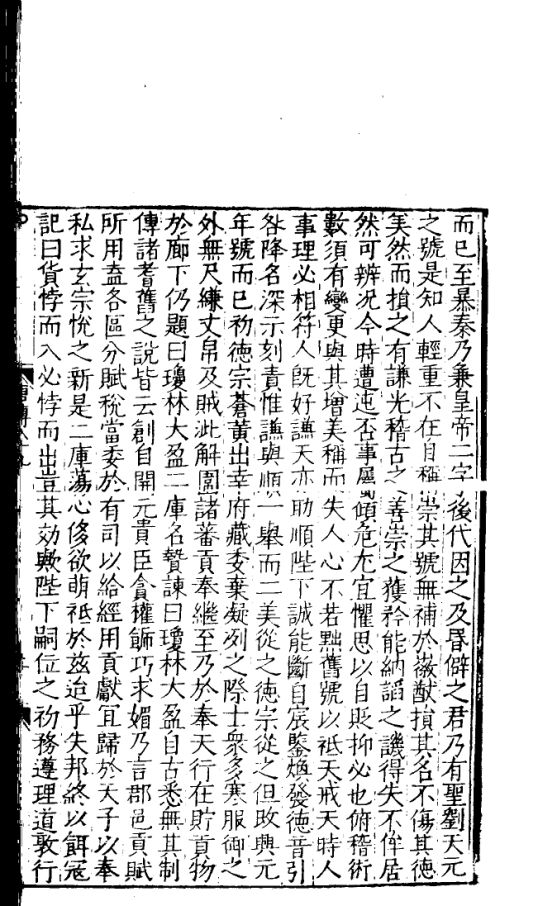 而已至暴秦乃兼皇帝二字後代因之及昬僻之君乃有聖劉天元
之號是知人輕重不在自稱崇其號無補於徽猷損其名不傷其德
美然而損之有謙光稽古之善崇之獲矜能納謟之譏得失不侔居
然可辨况今時遭迍否事屬傾危尤宜懼思以自貶抑必也俯稽術
數須有變更與其增美稱而失人心不若黜舊號以祗天戒天時人
事理必相符人旣好謙天亦助順陛下誠能斷自宸鑒煥發德音引
咎降名深示刻責惟謙與順一舉而二美從之德宗從之但改興元
年號而已初德宗蒼黃出幸府藏委棄凝冽之際士衆多寒服御之
外無尺縑丈帛及賊泚解圍諸蕃貢奉繼至乃於奉天行在貯貢物
於廊下仍題曰瓊林大盈二庫名贄諫曰瓊林大盈自古悉無其制
傳諸耆舊之說皆云創自開元貴臣貪權飾巧求媚乃言郡邑貢賦
所用盍各區分賦稅當委於有司以給經用貢獻宜歸於天子以奉
私求玄宗悅之新是二庫蕩心侈欲萌祗於茲迨乎失邦終以餌寇
記曰貨悖而入必悖而出豈其効歟陛下嗣位之初務遵理道敦行